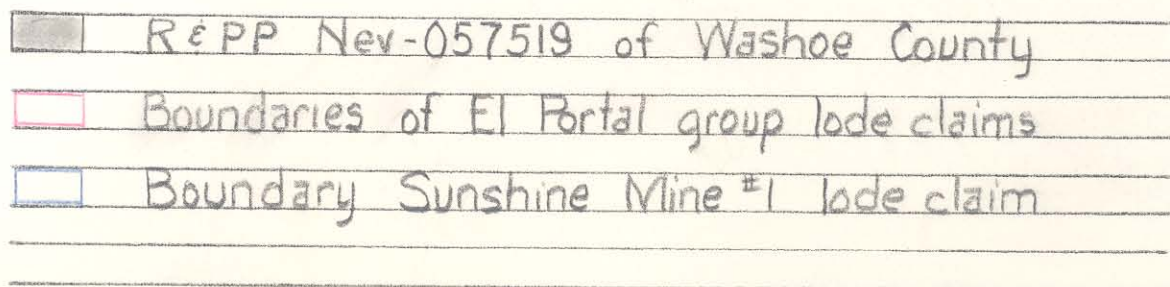 R & PP Nev-057519 of Washoe County
Boundaries of El Portal group lode claims
Boundary Sunshine Mine #1 lode claim